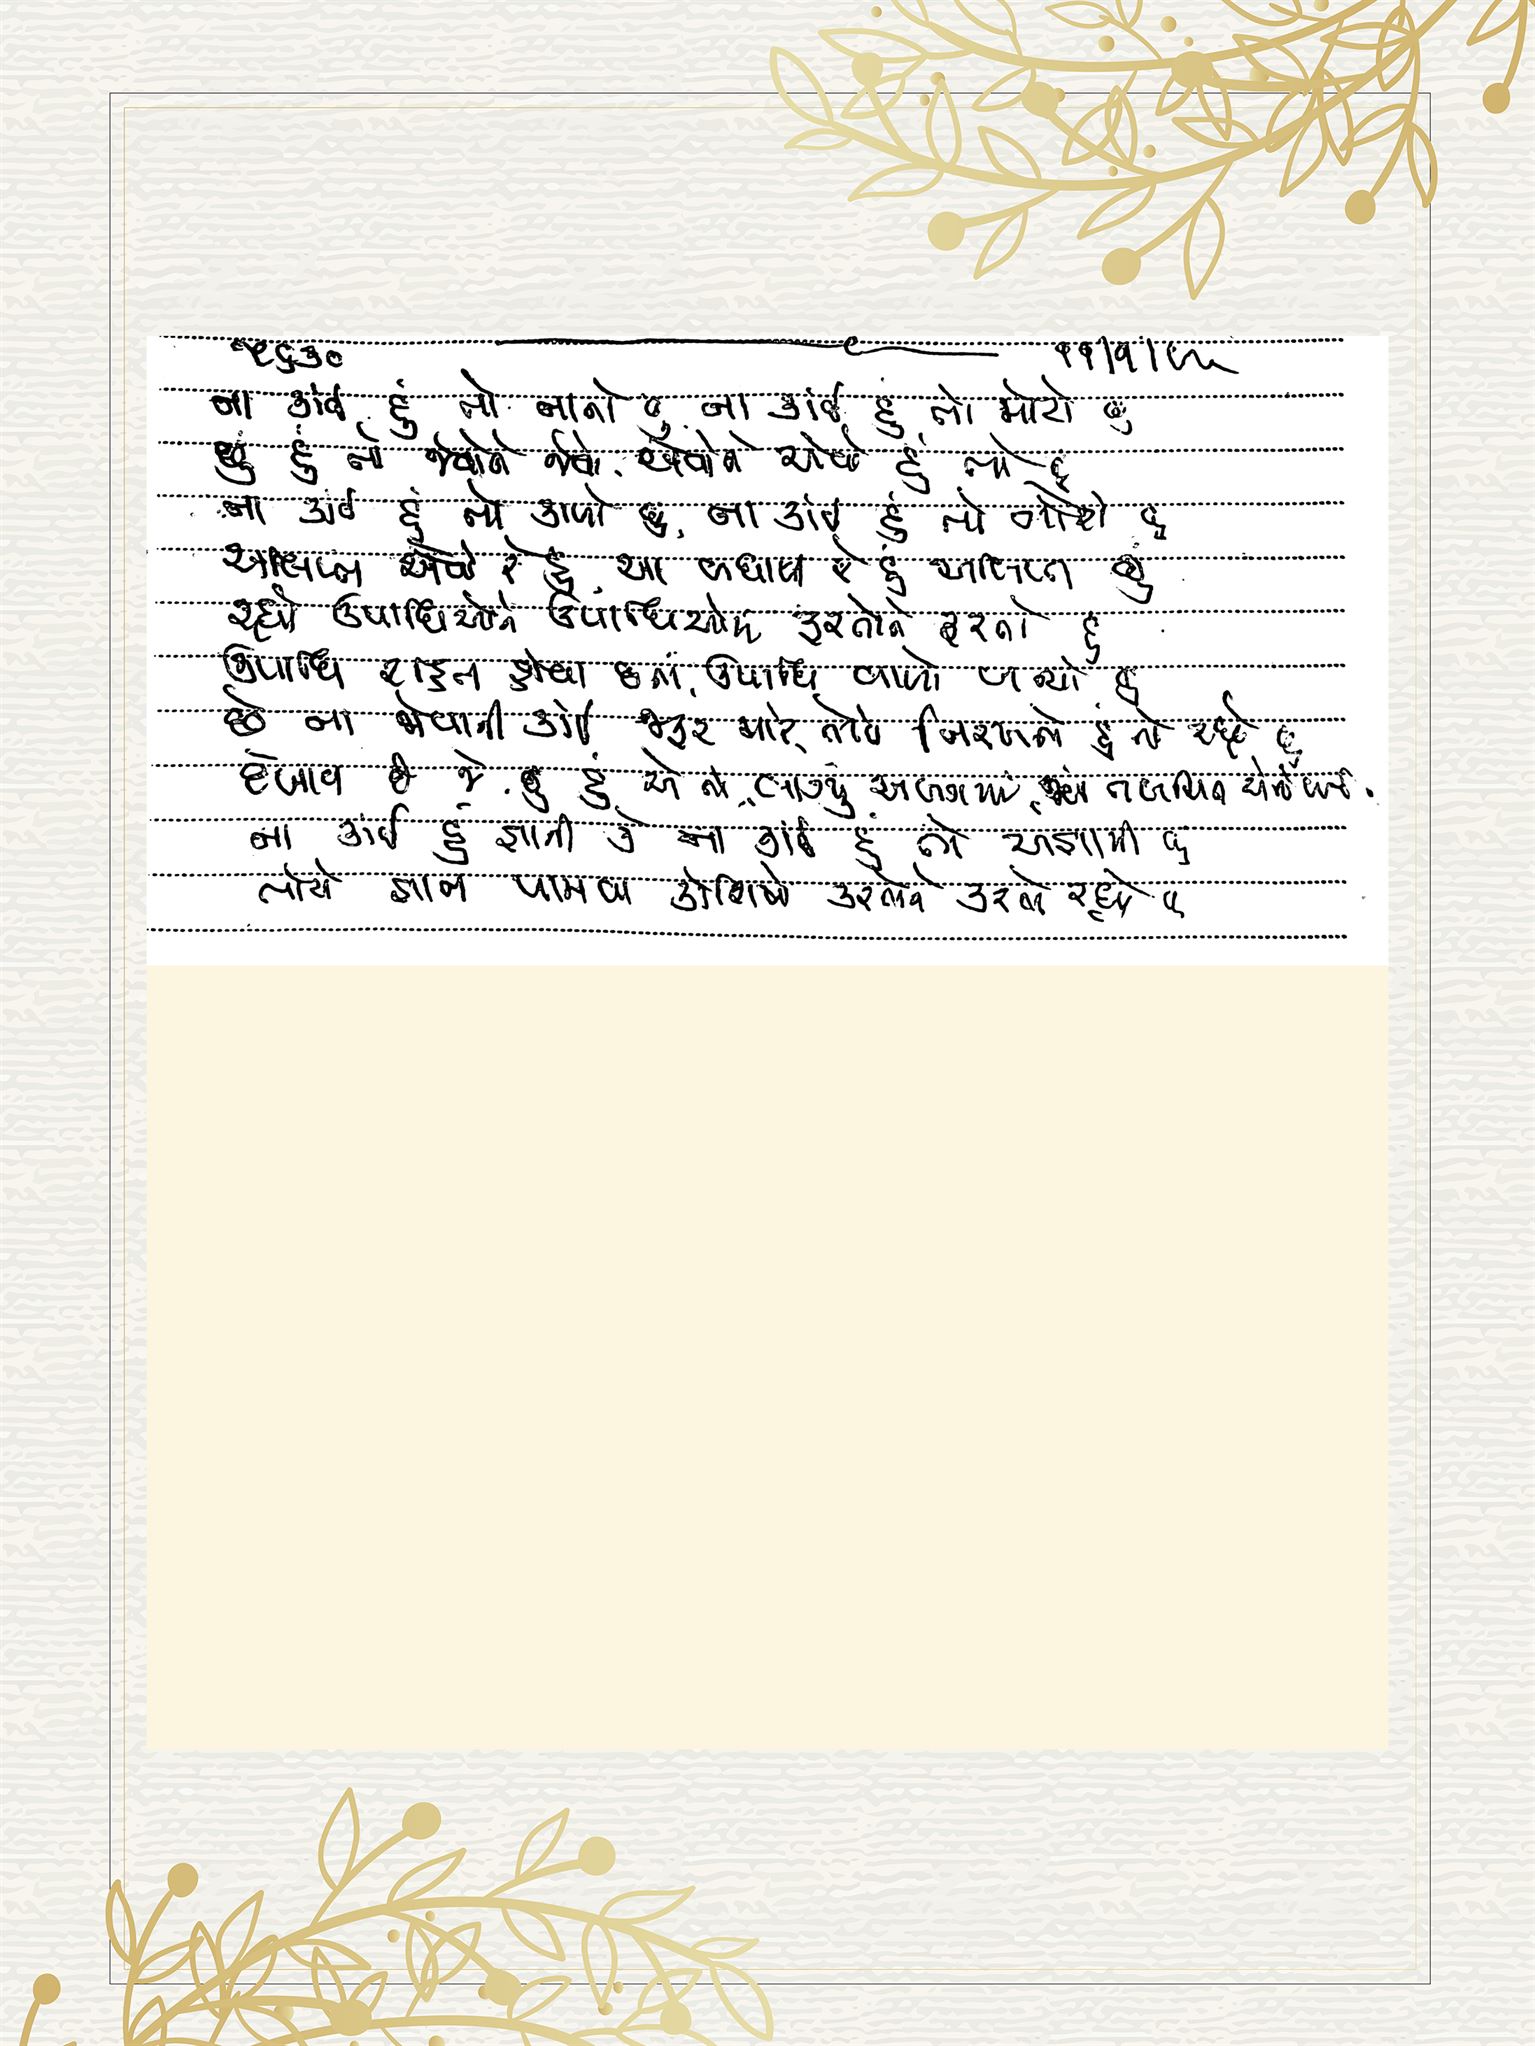 ૨૬૩૦ ૧૧/૧/
ના કાંઈ હું તો નાનો છું, ના કાંઈ હું તો મોટો છું
છું હું તો જેવોને જેવો, એવોને એવો હું તો છું
ના કાંઈ હું તો કાળો છું, ના કાંઈ હું તો ગોરો છું
અલિપ્ત એવો રે હું, આ બધાથી રે હું અલિપ્ત છું
રહ્યો ઉપાધિઓને ઉપાધિઓમાં ફરતોને ફરતો છું
ઉપાધિ રહિત હોવા છતાં, ઉપાધિ વાળો બન્યો છું
છે ના જોવાની કાંઈ જરૂર મારે, તોય નિરખતો હું તો રહ્યો છું
દેખાવ છે જે, છું હું એ તો, લાગ્યું અલગમાં,
ના કાંઈ હું જ્ઞાની કે ના કાંઈ હું તો અજ્ઞાની છું
તોયે જ્ઞાન પામવા કોશિશો કરતોને કરતો રહ્યો છું